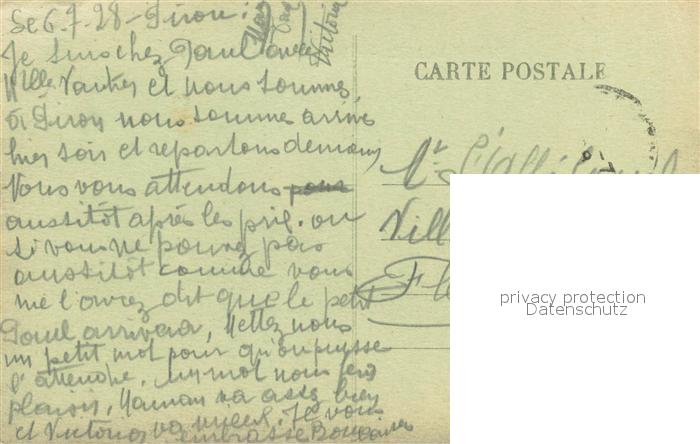 Le 6.7.28 - Giron :
Je suis chez Paul avec
Mlle Vautes et nous sommes
à Giron nous sommes arrivés
hier soir et repartons demain
Nous vous attendons pour
aussitôt après les prix. ou
si vous ne pouvez pas
aussitôt comme vous
me l'avez dit que le petit
Paul arrivera, Mettez nous
un petit mot pour qu'on puisse
l'attendre. un mot nous fera
plaisir, Maman va assez bien
et Victoria va mieux. Je vous
embrasse Bons baisers
Victoria
CARTE POSTALE
Vill
privacy protection
Datenschutz